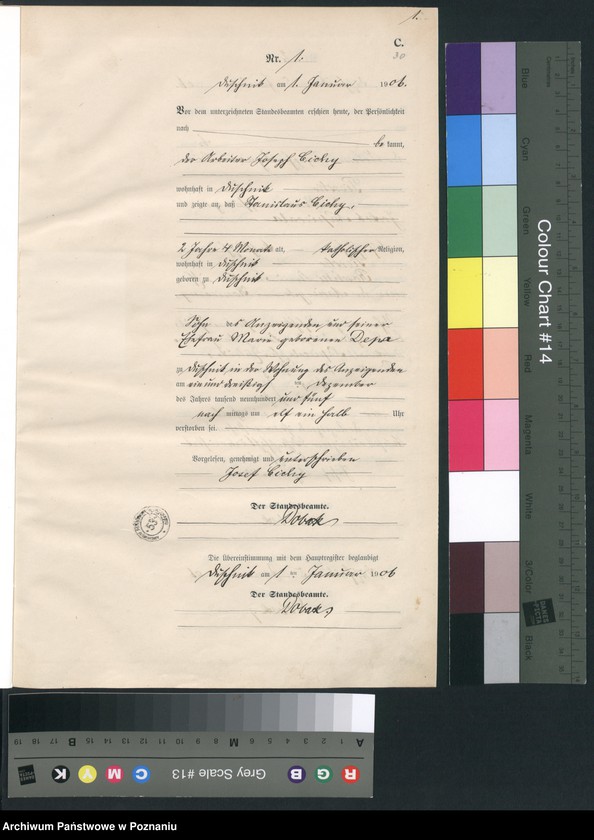 1.
C.
30
Nr. 1.
Duschnik am 1. Januar 1906.
Vor dem unterzeichneten Standesbeamten erschien heute, der Persönlichkeit
nach
be kannt,
der Arbeiter Joseph Cichy
wohnhaft in Duschnik
und zeigte an, daß Stanislaus Cichy,
2 Jahre 4 Monate alt, katholischer Religion,
wohnhaft in Duschnik
geboren zu Duschnik
Sohn des Anzeigenden und seiner
Ehefrau Marie geborenen Depa
zu Duschnik in der Wohnung des Anzeigenden
am ein und dreißigsten Dezember
des Jahres tausend neunhundert und fünf
nach mittags um elf ein halb Uhr
verstorben sei.
Vorgelesen, genehmigt und unterschrieben
Josef Cichy
Der Standesbeamte.
Die Übereinstimmung mit dem Hauptregister beglaubigt
Duschnik am 1ten Januar 1906
Der Standesbeamte.
Colour Chart #14
Blue
Cyan
Green
Yellow
Red
Magenta
White
3/Color
Black
Grey Scale #13
A 1 2 3 4 5 6 M 8 9 10 11 12 13 14 15 B 17 18 19
R G B C M Y K
Archiwum Państwowe w Poznaniu